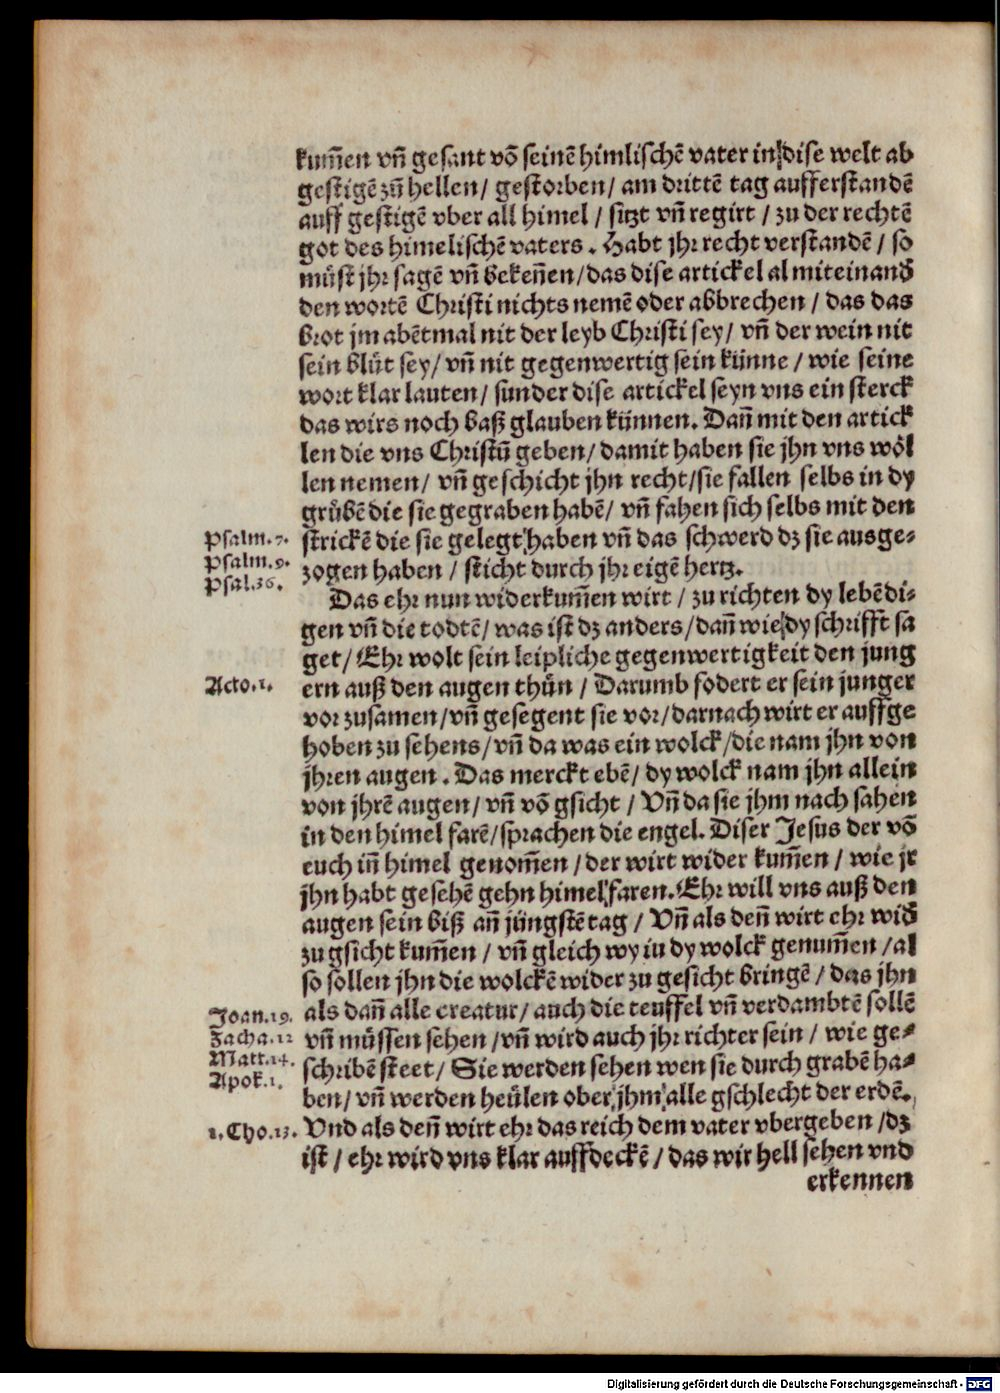 kum̄en vn̄ gesant võ seinẽ himlischẽ vater in dise welt ab
gestigẽ zů hellen / gestorben / am drittẽ tag aufferstandẽ
auff gestigẽ vber all himel / sitzt vn̄ regirt / zu der rechtẽ
got des himelischẽ vaters . Habt jhr recht verstandẽ / so
můst jhr sagẽ vn̄ beken̄en / das dise artickel al miteinand
den wortẽ Christi nichts nemẽ oder abbrechen / das das
brot jm abẽtmal nit der leyb Christi sey / vn̄ der wein nit
sein blůt sey / vn̄ nit gegenwertig sein künne / wie seine
wort klar lauten / sunder dise artickel seyn vns ein sterck
das wirs noch baß glauben künnen. Dan̄ mit den artick
len die vns Christũ geben / damit haben sie jhn vns wöl
len nemen / vn̄ geschicht jhn recht / sie fallen selbs in dy
grůbẽ die sie gegraben habẽ / vn̄ fahen sich selbs mit den
Psalm. 7.
strickẽ die sie gelegt haben vn̄ das schwerd dz sie ausge⸗
Psalm. 9.
zogen haben / sticht durch jhr eigẽ hertz.
Psal. 36.
Das ehr nun widerkum̄en wirt / zu richten dy lebẽdi⸗
gen vn̄ die todtẽ / was ist dz anders / dan̄ wie dy schrifft sa
get / Ehr wolt sein leipliche gegenwertigkeit den jung
Acto. 1.
ern auß den augen thůn / Darumb fodert er sein junger
vor zusamen / vn̄ gesegent sie vor / darnach wirt er auffge
hoben zu sehens / vn̄ da was ein wolck / die nam jhn von
jhren augen . Das merckt ebẽ / dy wolck nam jhn allein
von jhrẽ augen / vn̄ võ gsicht / Vn̄ da sie jhm nach sahen
in den himel farẽ / sprachen die engel. Diser Jesus der võ
euch in̄ himel genom̄en / der wirt wider kum̄en / wie jr
jhn habt gesehẽ gehn himel faren. Ehr will vns auß den
augen sein biß an̄ jüngstẽ tag / Vn̄ als den̄ wirt ehr wid
zu gsicht kum̄en / vn̄ gleich wy iu dy wolck genum̄en / al
so sollen jhn die wolckẽ wider zu gesicht bringẽ / das jhn
Joan. 19.
als dan̄ alle creatur / auch die teuffel vn̄ verdambtẽ sollẽ
Zacha. 12
vn̄ müssen sehen / vn̄ wird auch jhr richter sein / wie ge⸗
Matt. 24.
schribẽ steet / Sie werden sehen wen sie durch grabẽ ha⸗
Apok. 1.
ben / vn̄ werden heülen ober jhm alle gschlecht der erdẽ.
1. Cho. 13.
Vnd als den̄ wirt ehr das reich dem vater vbergeben / dz
ist / ehr wird vns klar auffdeckẽ / das wir hell sehen vnd
erkennen
Digitalisierung gefördert durch die Deutsche Forschungsgemeinschaft - DFG